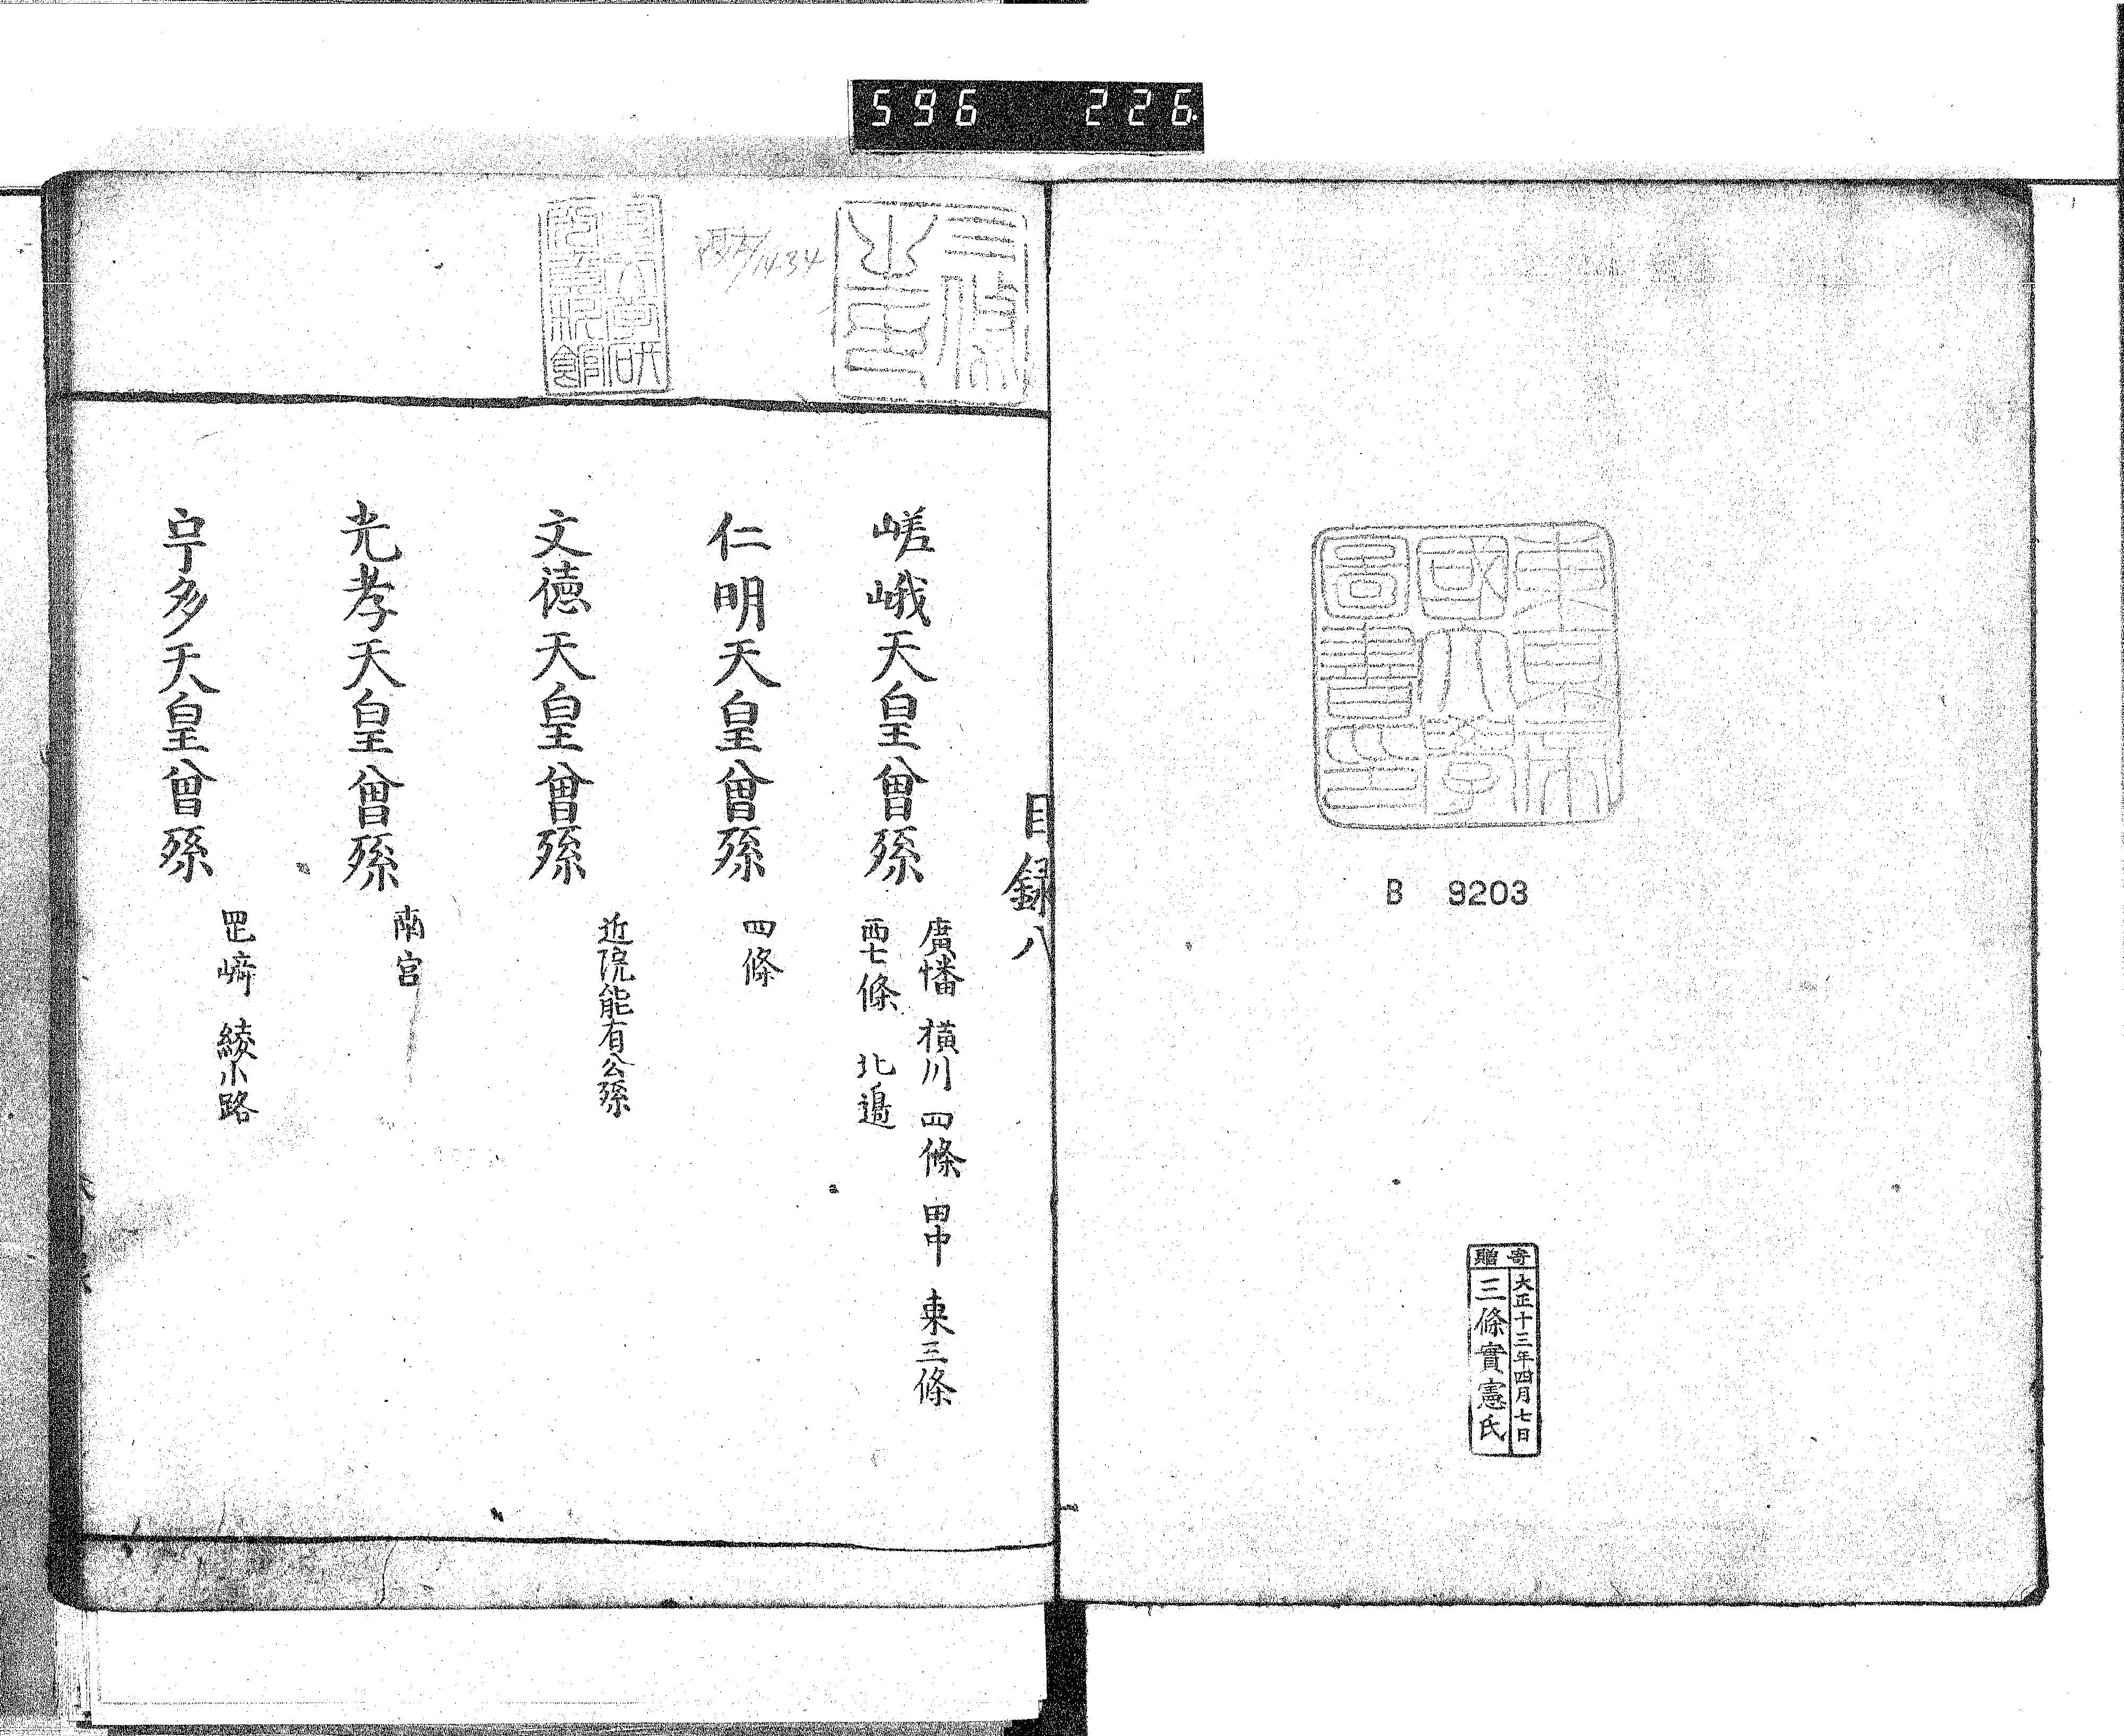 596 226
東京帝
國大學
圖書印
B 9203
寄贈
大正十三年四月七日
三條實憲氏
三條
1434
目録八
嵯峨天皇曾孫
廣幡 横川 四條 田中 東三條
西七條 北邉
仁明天皇曾孫
四條
文徳天皇曾孫
近院能有公孫
光孝天皇曾孫
南宮
宇多天皇曾孫
罡﨑 綾小路